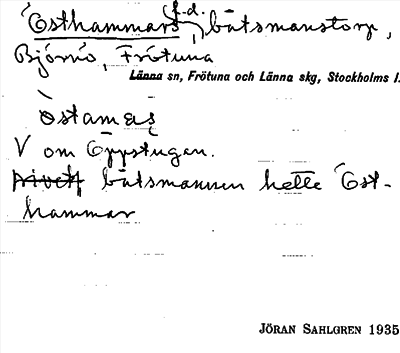 Östhammars f.d. båtsmanstorp,
Björnö, Frötuna
Länna sn, Frötuna och Länna skg, Stockholms l.
V om Öppstugan.
båtsmannen hette Öst-
hammar
JÖRAN SAHLGREN 1935